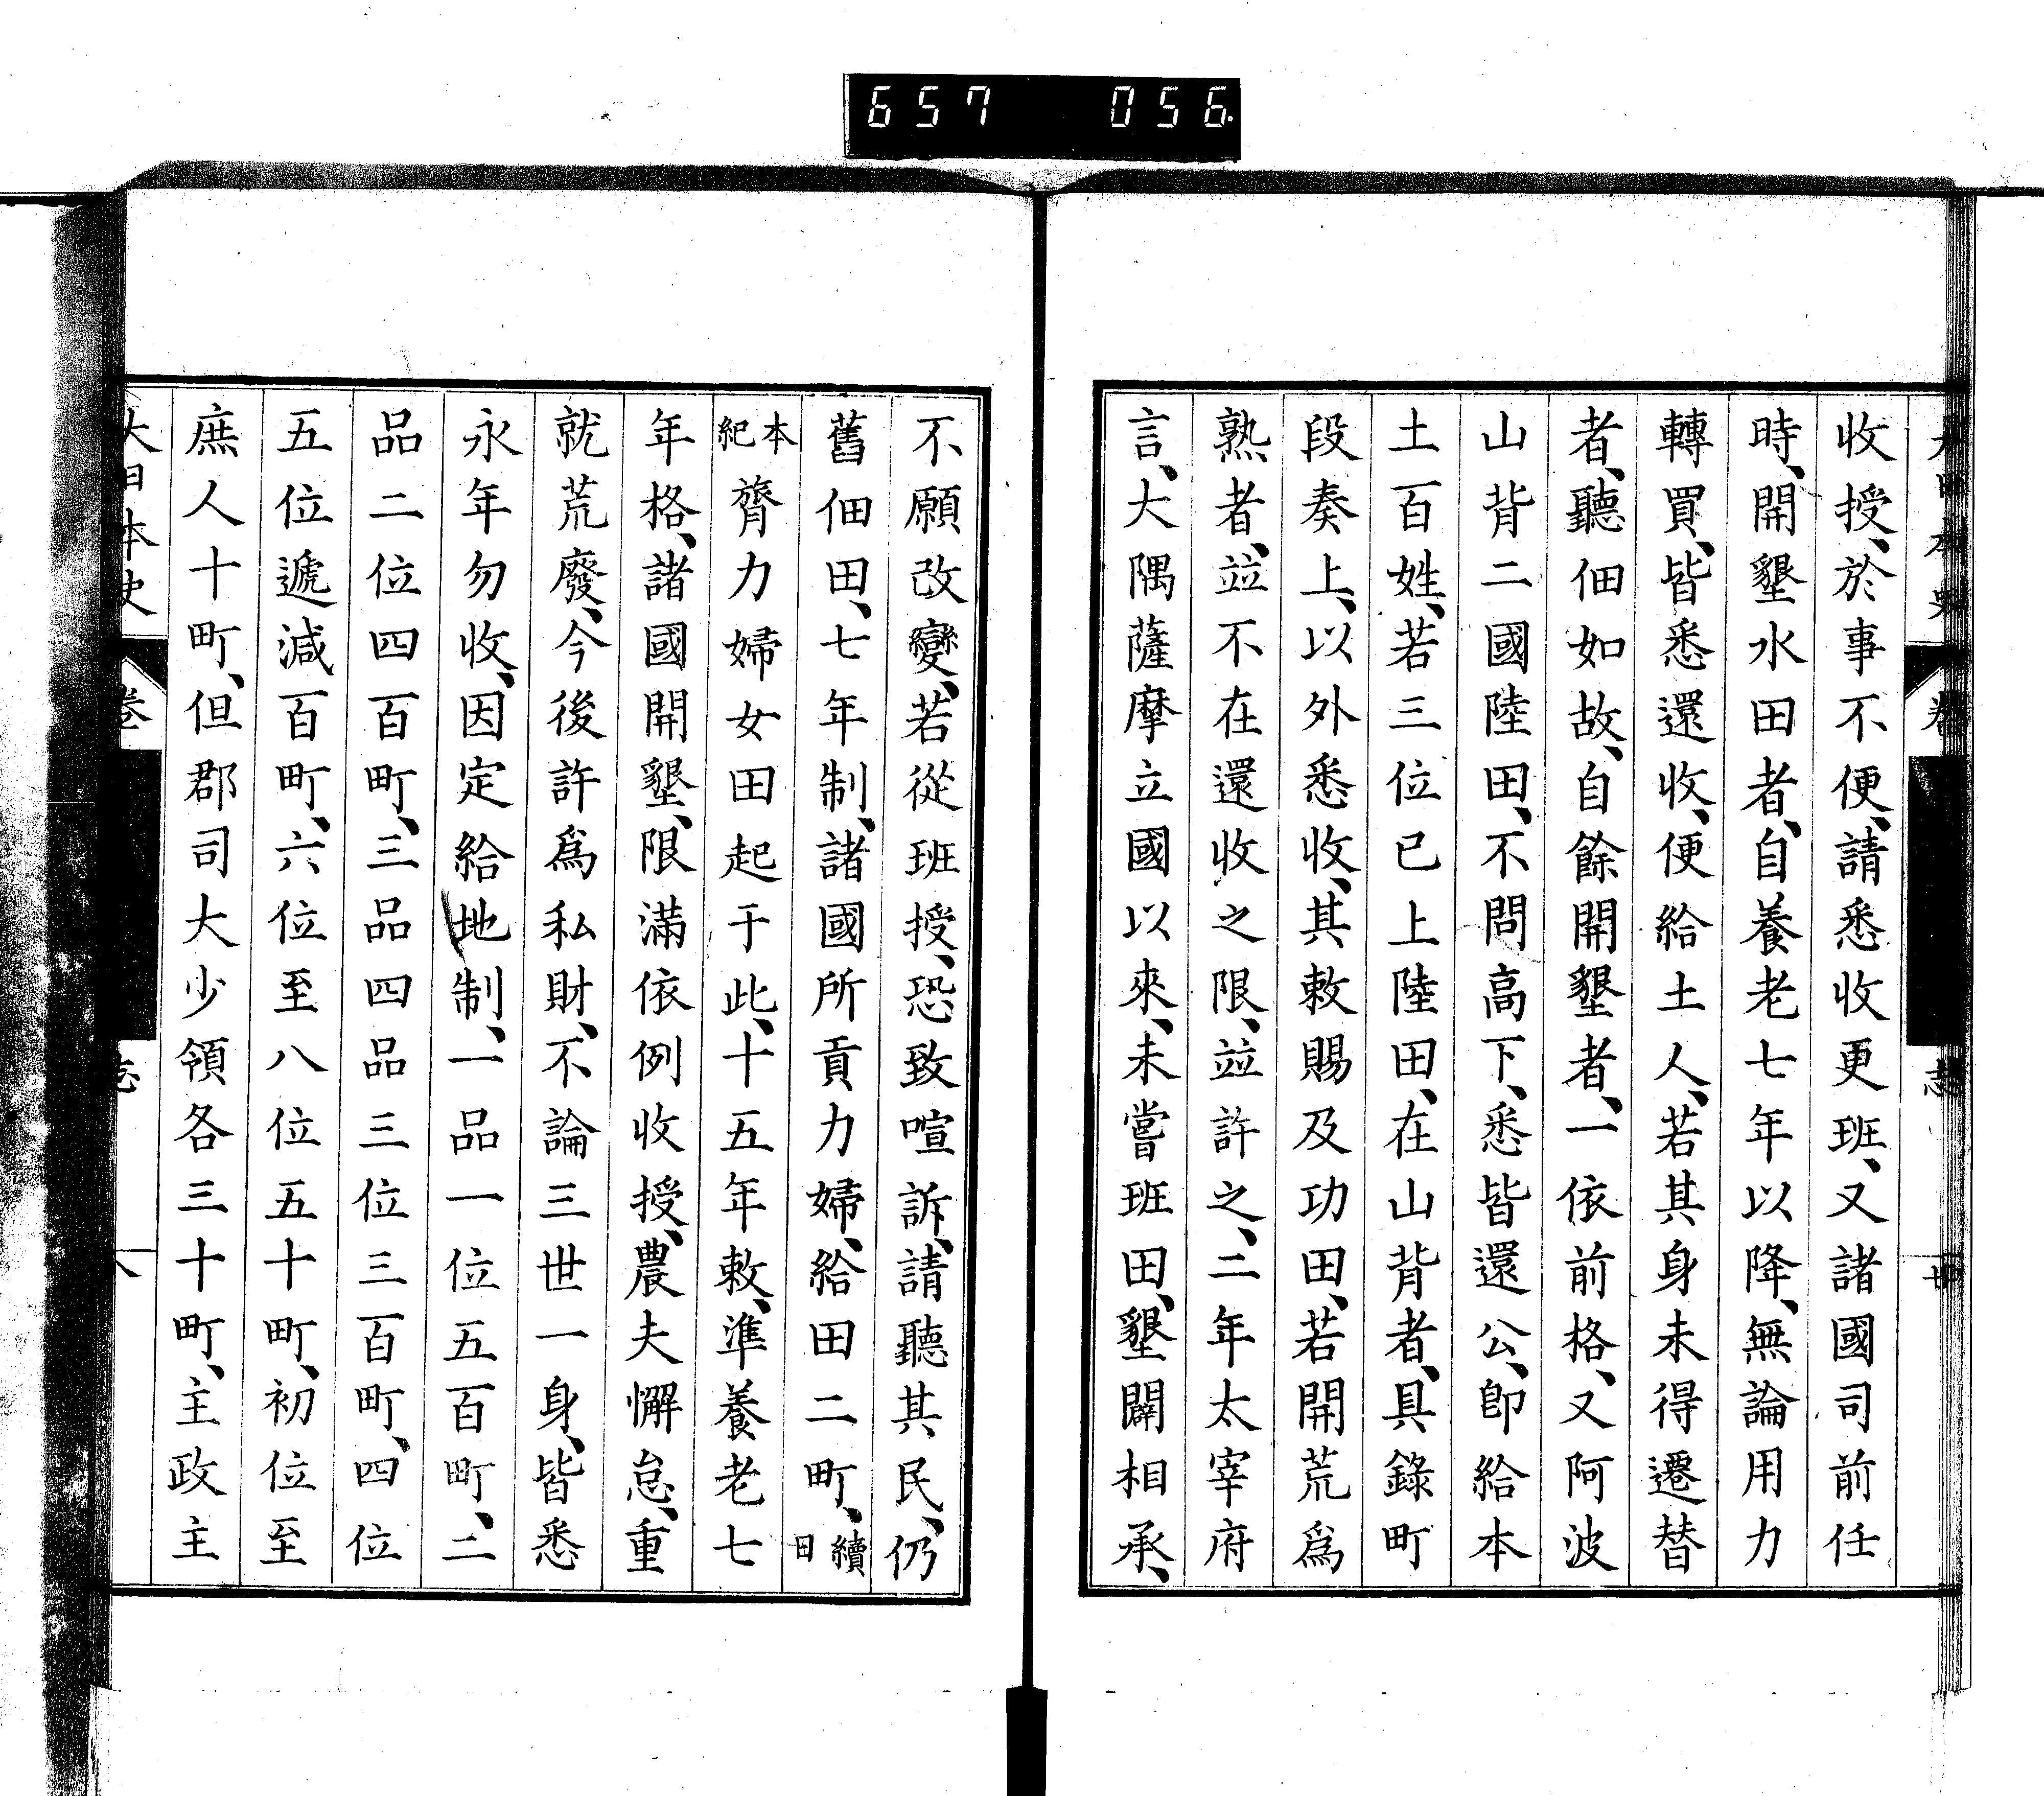 657 056
大日本史 卷 志 廿
收授、於事不便、請悉收更班、又諸國司前任
時、開墾水田者、自養老七年以降、無論用力
轉買、皆悉還收、便給土人、若其身未得遷替
者、聽佃如故、自餘開墾者、一依前格、又阿波
山背二國陸田、不問高下、悉皆還公、卽給本
土百姓、若三位已上陸田、在山背者、具錄町
段奏上、以外悉收、其敕賜及功田、若開荒爲
熟者、竝不在還收之限、竝許之、二年太宰府
言、大隅薩摩立國以來、未嘗班田、墾闢相承、
不願改變、若從班授、恐致喧訴、請聽其民、仍
舊佃田、七年制、諸國所貢力婦、給田二町、續日
本紀 膂力婦女田起于此、十五年敕、準養老七
年格、諸國開墾、限滿依例收授、農夫懈怠、重
就荒廢、今後許爲私財、不論三世一身、皆悉
永年勿收、因定給地制、一品一位五百町、二
品二位四百町、三品四品三位三百町、四位
五位遞減百町、六位至八位五十町、初位至
庶人十町、但郡司大少領各三十町、主政主
大日本史 卷 志